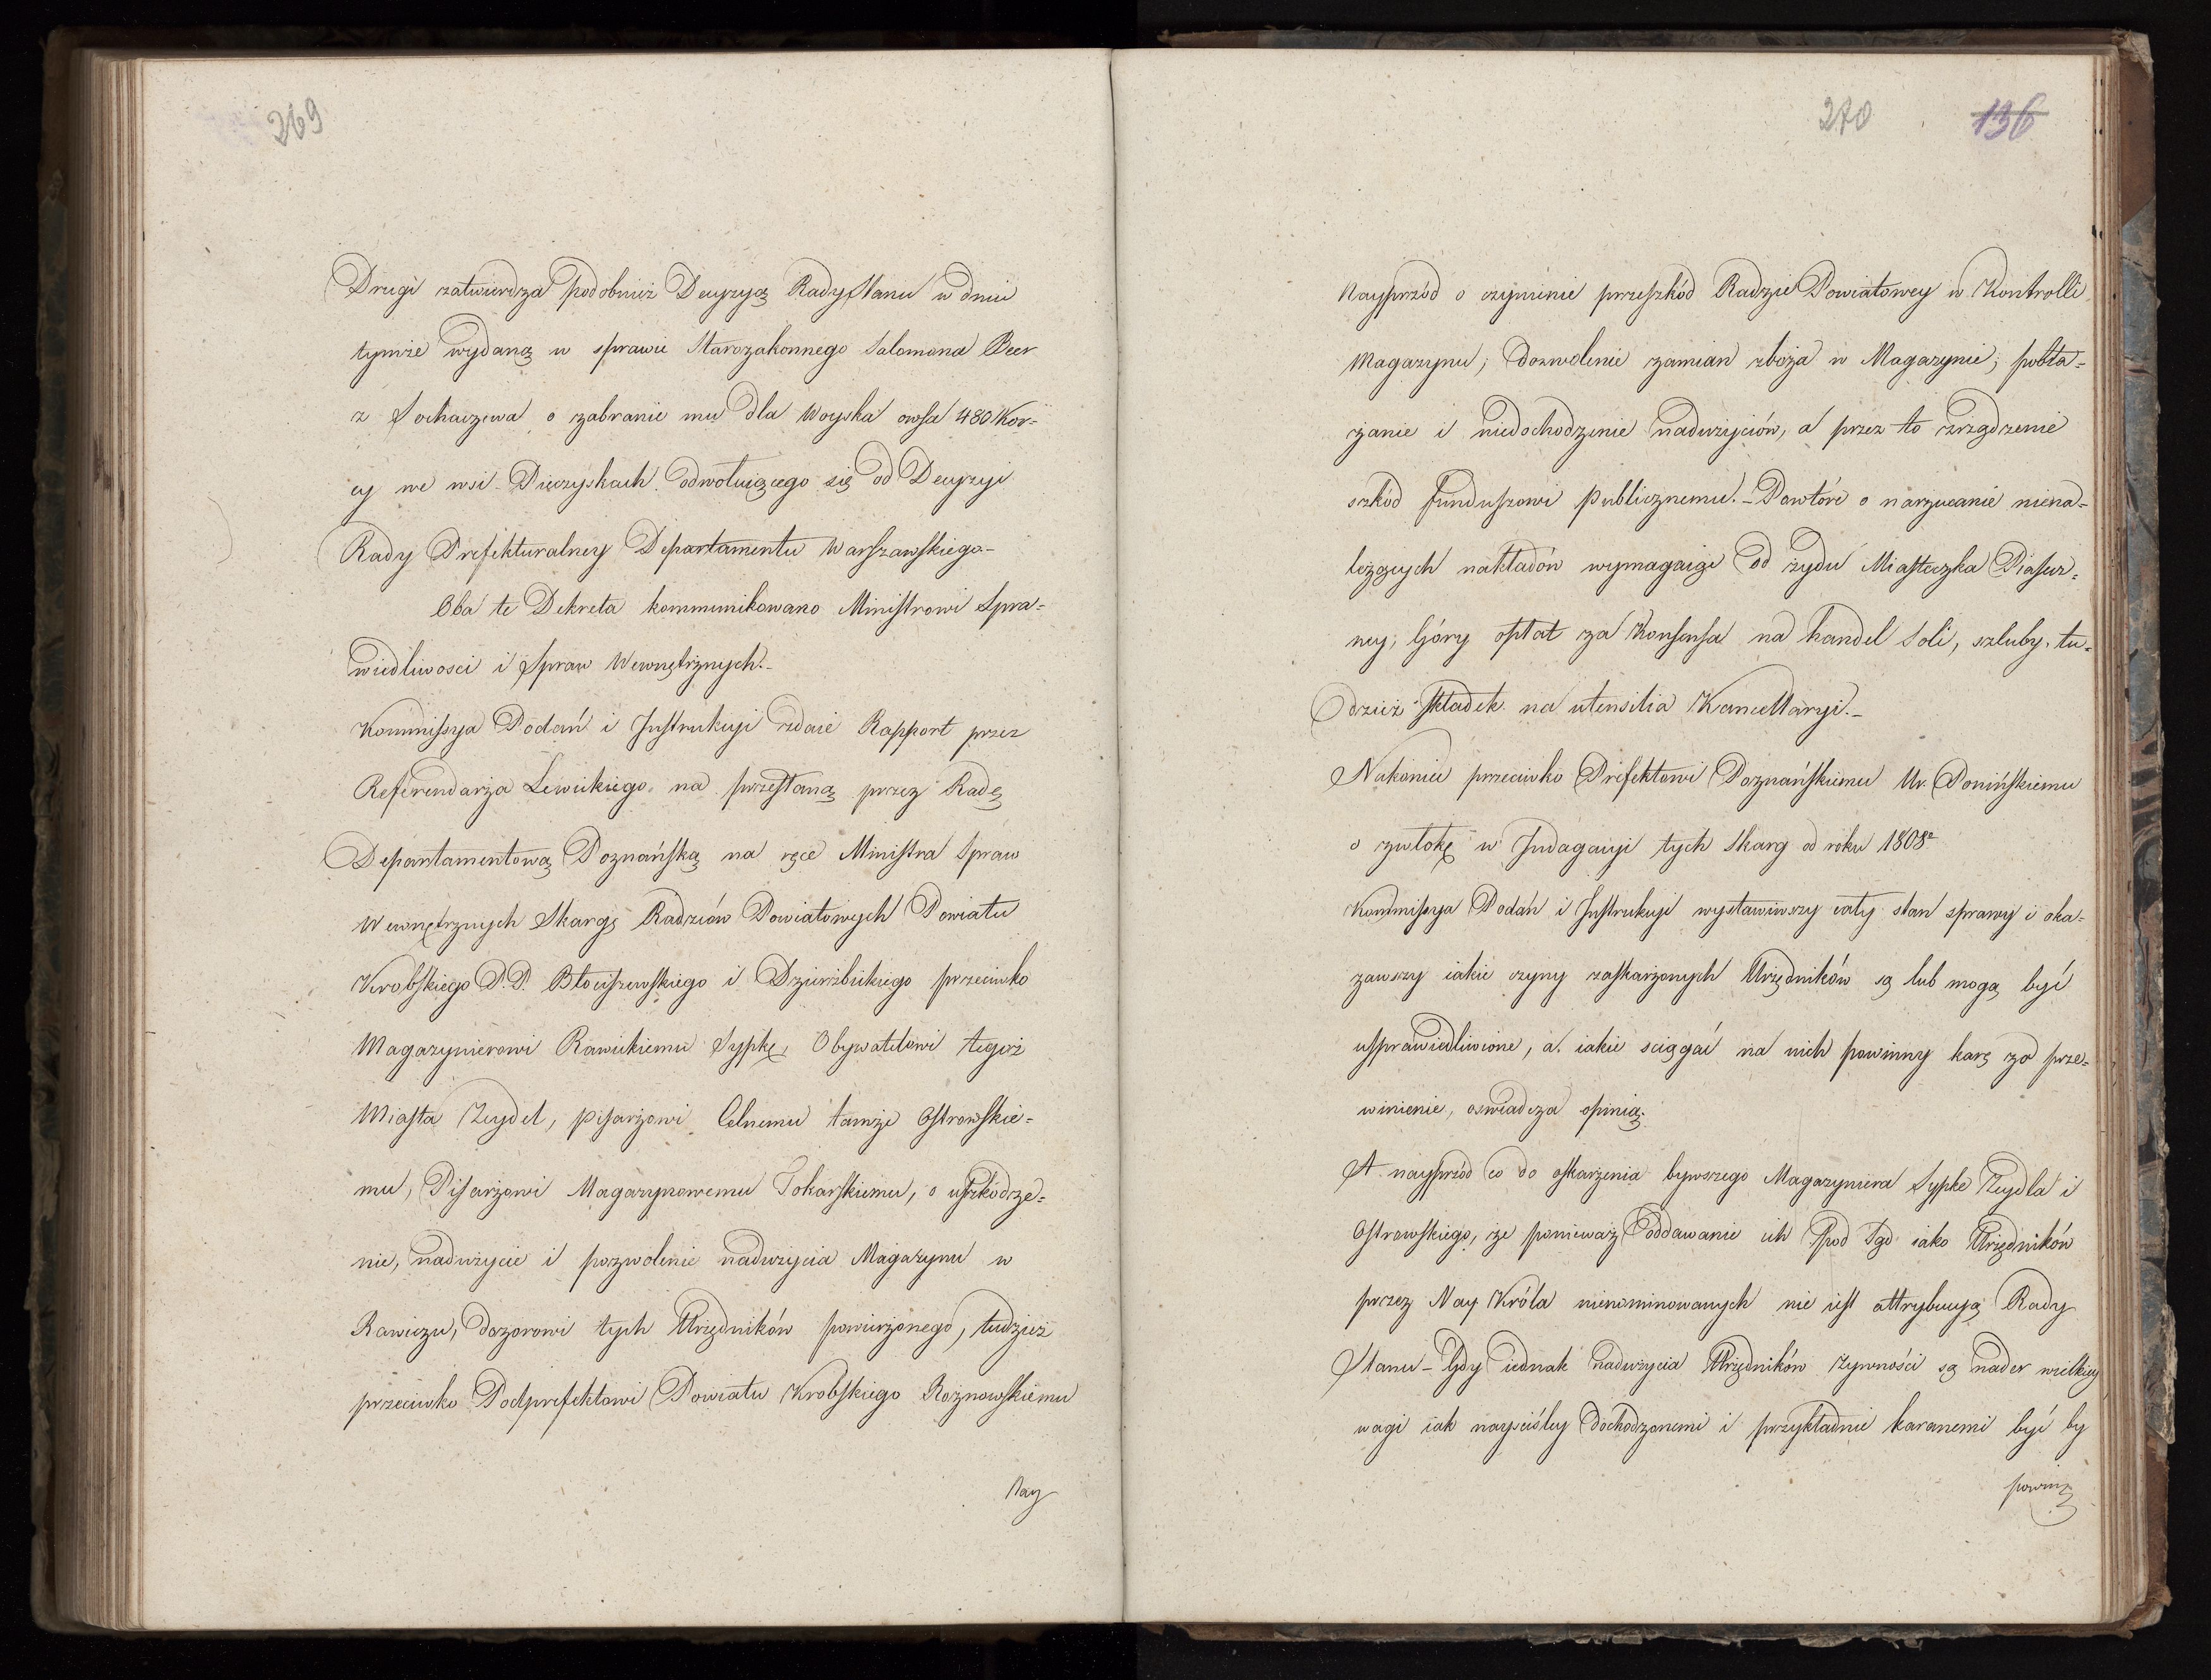 269
Drugi zatwierdza podobnież Decyzyą Rady Stanu w dniu
tymże wydaną w sprawie Starozakonnego Salomona Beer
z Sochaczewa o zabranie mu dla Woyska owsa 480 Kor-
cy we wsi Pięczyskach odwołuiącego się od Decyzyi
Rady Prefekturalney Departamentu Warszawskiego-
Oba te Dekreta kommunikowano Ministrowi Spra-
wiedliwosci i Spraw Wewnętrznych.-
Kommissya Podań i Instrukcyi zdaie Rapport przez
Referendarza Lewickiego na przesłaną przez Radę
Departamentową Poznańską na ręce Ministra Spraw
Wewnętrznych Skargę Radzców Powiatowych Powiatu
Krobskiego P.P. Błociszewskiego i Dzierzbickiego przeciwko
Magazynierowi Rawickiemu Sypke, Obywatelowi tegoż
Miasta Zeydel, pisarzowi Celnemu tamże Ostrowskie-
mu, Pisarzowi Magazynowemu Tokarskiemu, o uszkodze-
nie, nadużycie i pozwolenie nadużycia Magazynu w
Rawiczu, dozorowi tych Urzędników powierzonego, tudzież
przeciwko Podprefektowi Powiatu Krobskiego Rożnowskiemu
Nay
270 136
Nayprzód o czynienie przeszkód Radzie Powiatowey w Kontrolli
Magazynu; dozwolenie zamian zboża w Magazynie; pobła-
żanie i niedochodzenie nadużyciów, a przez to zrządzenie
szkód funduszowi publicznemu.- Powtóre o narzucanie niena-
leżących nakładów wymagaiąc od żydu Miasteczka Piasecz-
ney Góry opłat za Konsensa na handel Soli, szluby, tu-
dzież składek na utensilia Kancellaryi.-
Nakoniec przeciwko Prefektowi Poznańskiemu Ur. Ponińskiemu
o zwłokę w Indagacyi tych Skarg od roku 1808º
Kommissya Podań i Instrukcyi wystawiwszy cały stan sprawy i oka-
zawszy iakie czyny zaskarżonych Urzędników są lub mogą być
usprawiedliwione, a iakie sciągać na nich powinny karę za prze-
winienie, oswiadcza opinią.
A nayprzód co do oskarżenia bywszego Magazyniera Sypke Zeydla i
Ostrowskiego, że ponieważ oddawanie ich pod Sąd iako Urzędników
przez Nay Króla nienominowanych nie iest attrybucyą Rady
Stanu - Gdy iednak nadużycia Urzędników żywności są nader wielkiey
wagi iak nayściśley dochodzonemi i przykładnie karanemi być by
powin